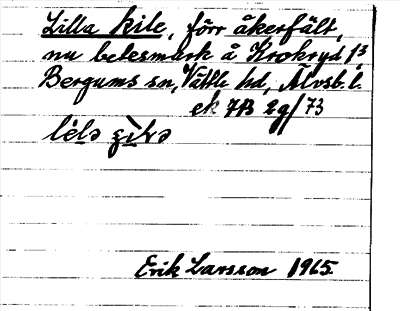 Lilla kile, förr åkerfält,
nu betesmark å Krokryd 1/3
Bergums sn, Vättle hd, Älvsb. l.
ek 7B 2g/73
Erik Larsson 1965.